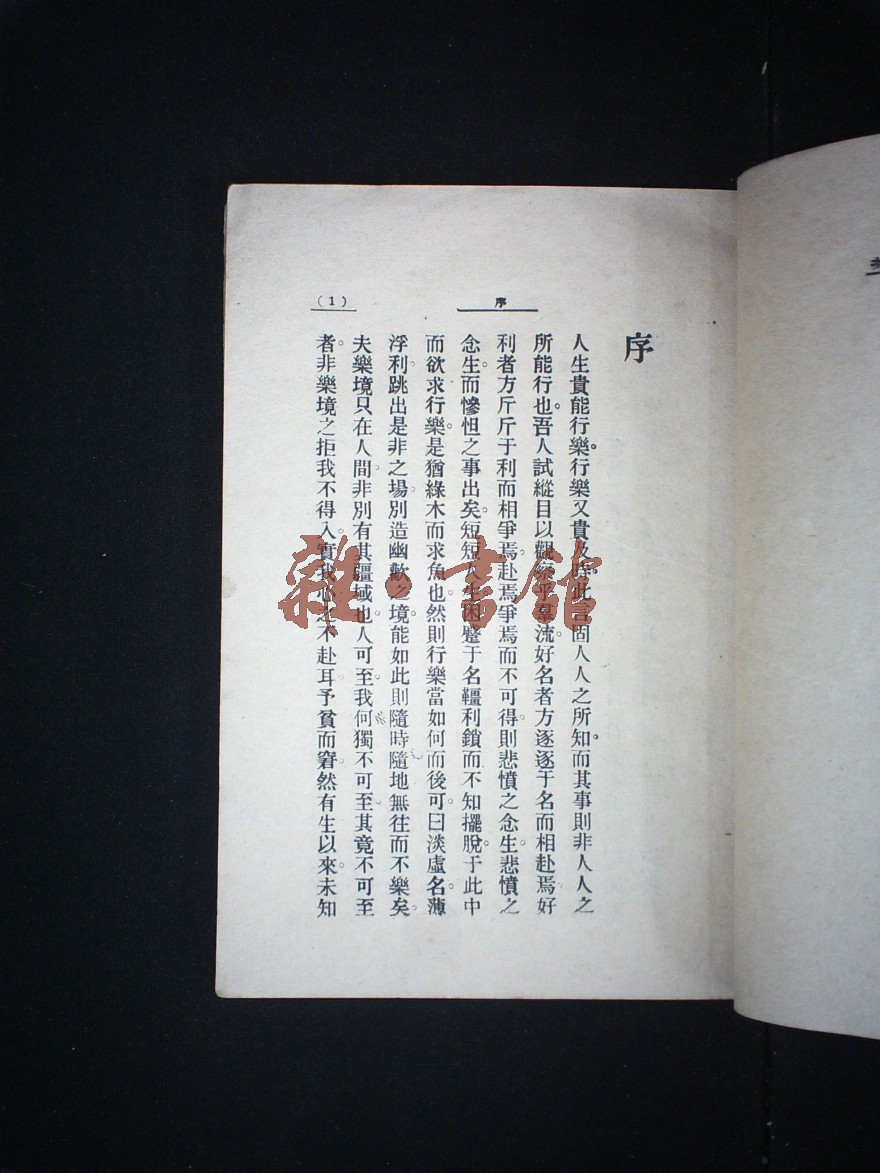 序
人生貴能行樂。行樂又貴及時。此言固人人之所知。而其事則非人人之
所能行也。吾人試縱目以觀察乎羣流。好名者方逐逐于名而相赴焉。好
利者方斤斤于利而相爭焉。赴焉爭焉而不可得。則悲憤之念生。悲憤之
念生。而慘怛之事出矣。短短人生。困蹙于名韁利鎖而不知擺脫。于此中
而欲求行樂。是猶綠木而求魚也。然則行樂當如何而後可。曰淡虛名。薄
浮利。跳出是非之場。別造幽歡之境。能如此則隨時隨地無往而不樂矣。
夫樂境只在人間。非別有其疆域也。人可至。我何獨不可至。其竟不可至
者。非樂境之拒我不得入。實我心之不赴耳。予貧而窘。然有生以來。未知
序
(1)
雜·書館